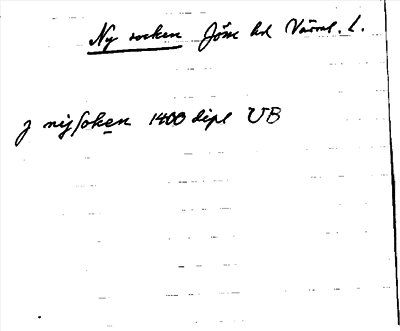 Ny socken Jösse hd Värml. l.
j nijsoken 1400 dipl UB